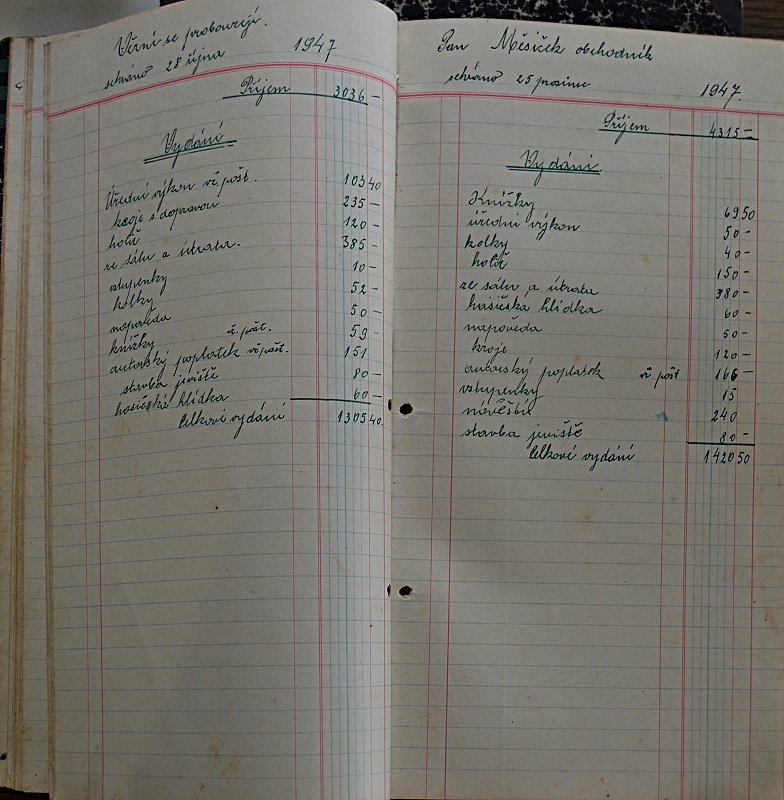 Věrní se probouzejí.
sehráno 28 října 1947
Příjem 3036 –
Vydání
Úřední výkon vč. pošt. 103 40
kroje s dopravou 235 –
holič 120 –
ze sálu a útrata. 385 –
vstupenky 10 –
kolky 52 –
napověda 50 –
knížky vč. pošt. 59 –
autorský poplatek vč. pošt. 151
stavba jeviště 80 –
hasičská hlídka 60 –
Celkové vydání 1305 40
Pan Měsíček obchodník
sehráno 25 prosince 1947.
Příjem 4315 –
Vydání.
Knížky 69 50
úřední výkon 50 –
kolky 40 –
holič 150 –
ze sálu a útrata 380 –
hasičská hlídka 60 –
napověda 50 –
kroje 120 –
autorský poplatek vč pošt 166 –
vstupenky 15
240
stavba jeviště 80 –
Celkové vydání 1420 50